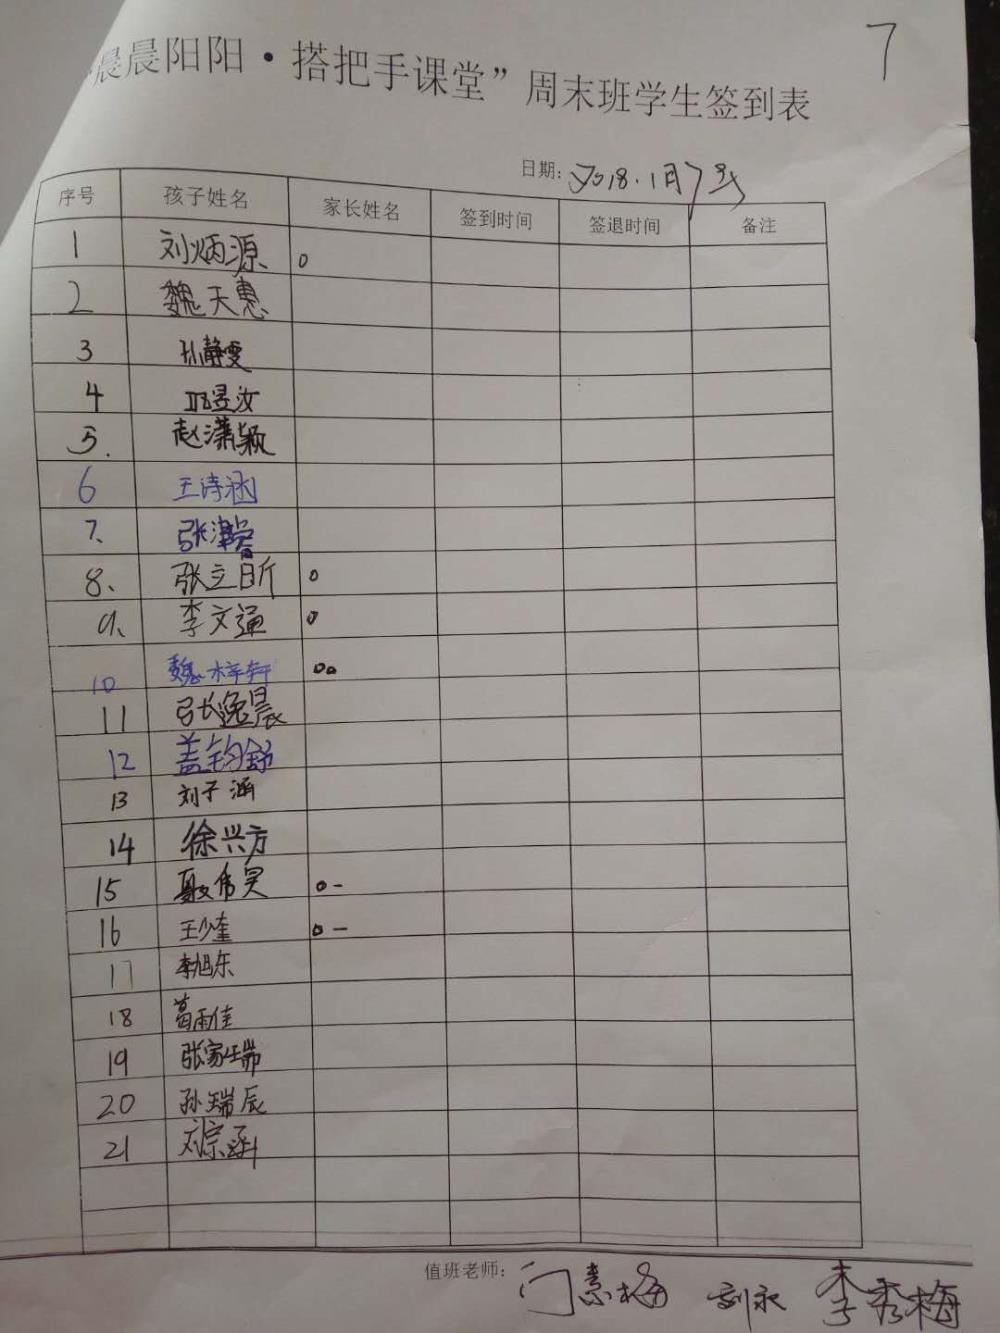 7
晨晨阳阳·搭把手课堂”周末班学生签到表
日期: 2018.1月7号
序号 孩子姓名 家长姓名 签到时间 签退时间 备注
1 刘炳源
2 魏天惠
3 孙静雯
4 邱昱汝
5. 赵潇颖
6 王诗涵
7、 张津
8、 张立昕
9、 李文通
10 魏梓轩
11 张逸晨
12 盖钧舒
13 刘子涵
14 徐兴方
15 伟昊
16 王少奎
17 李旭东
18 葛雨佳
19 张家瑞
20 孙瑞辰
21 刘宗函
值班老师: 门素梅 刘永 李秀梅